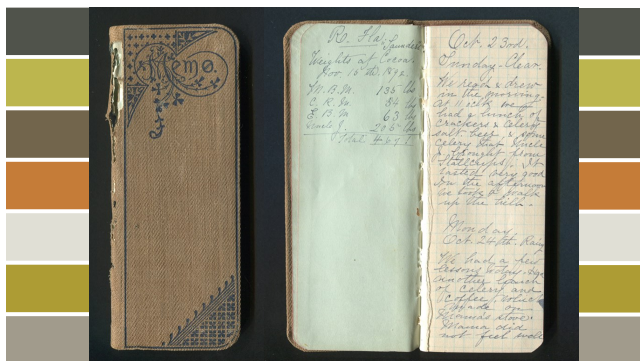 Memo.
R. Fla.
Saunders
Weights at Cocoa.
Nov 15th 1892.
M.B.M. 135 lbs
C.R.M. 84 lbs
E.B.M 63 lbs
Uncle 205 lbs
Total
Oct. 23rd.
Sunday-Clear.
We read & drew
in the morning.
at 11 o'clk we
had a lunch of
crackers & celery
salt, beef, & some
celery that Uncle
J. brought from
It
tasted very good
In the afternoon
we took a walk
up the hill.
Monday
Oct. 24th. Rainy
We had a few
lessons
another lunch
of celery and
coffee, which
made on
Mamas stove.
Mama did
not feel well